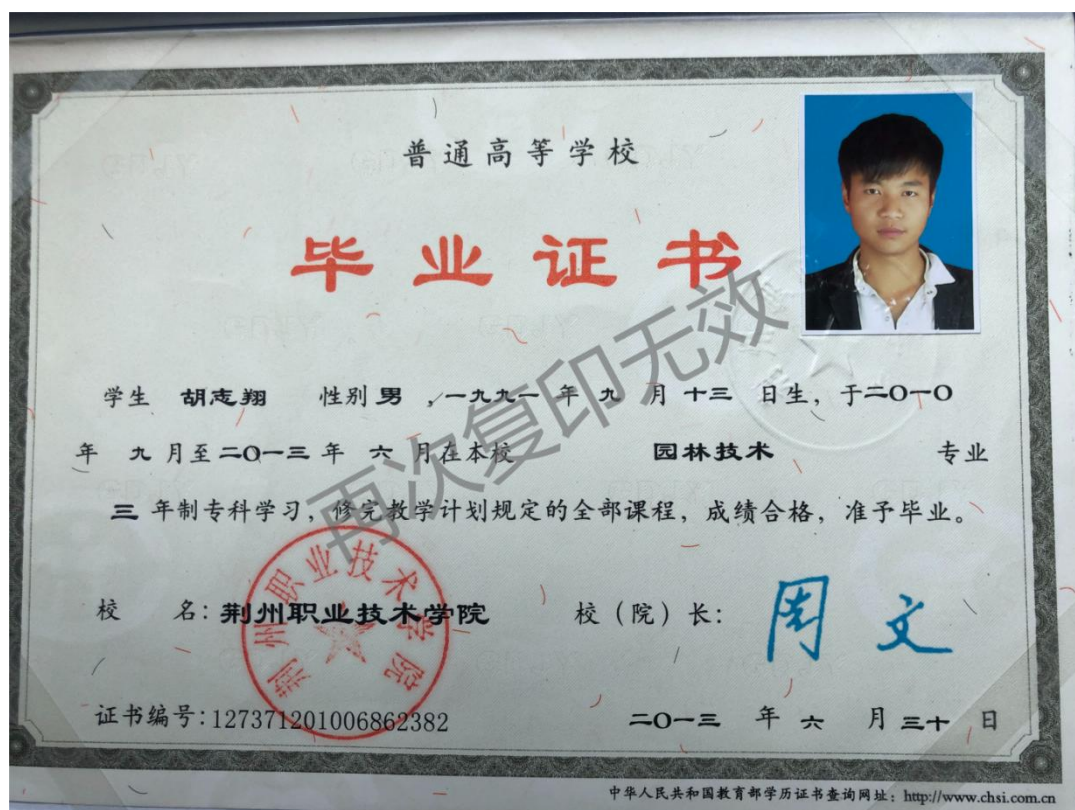 普通高等学校
毕业证书
学生 胡志翔 性别 男 ，一九九一 年 九 月 十三 日生，于二〇一〇
年 九 月至二〇一三 年 六 月在本校 园林技术 专业
三 年制专科学习，修完教学计划规定的全部课程，成绩合格，准予毕业。
校 名：荆州职业技术学院 校（院）长：周文
荆州职业技术学院
证书编号：127371201006862382 二〇一三 年 六 月 三十 日
中华人民共和国教育部学历证书查询网址：http://www.chsi.com.cn
再次复印无效